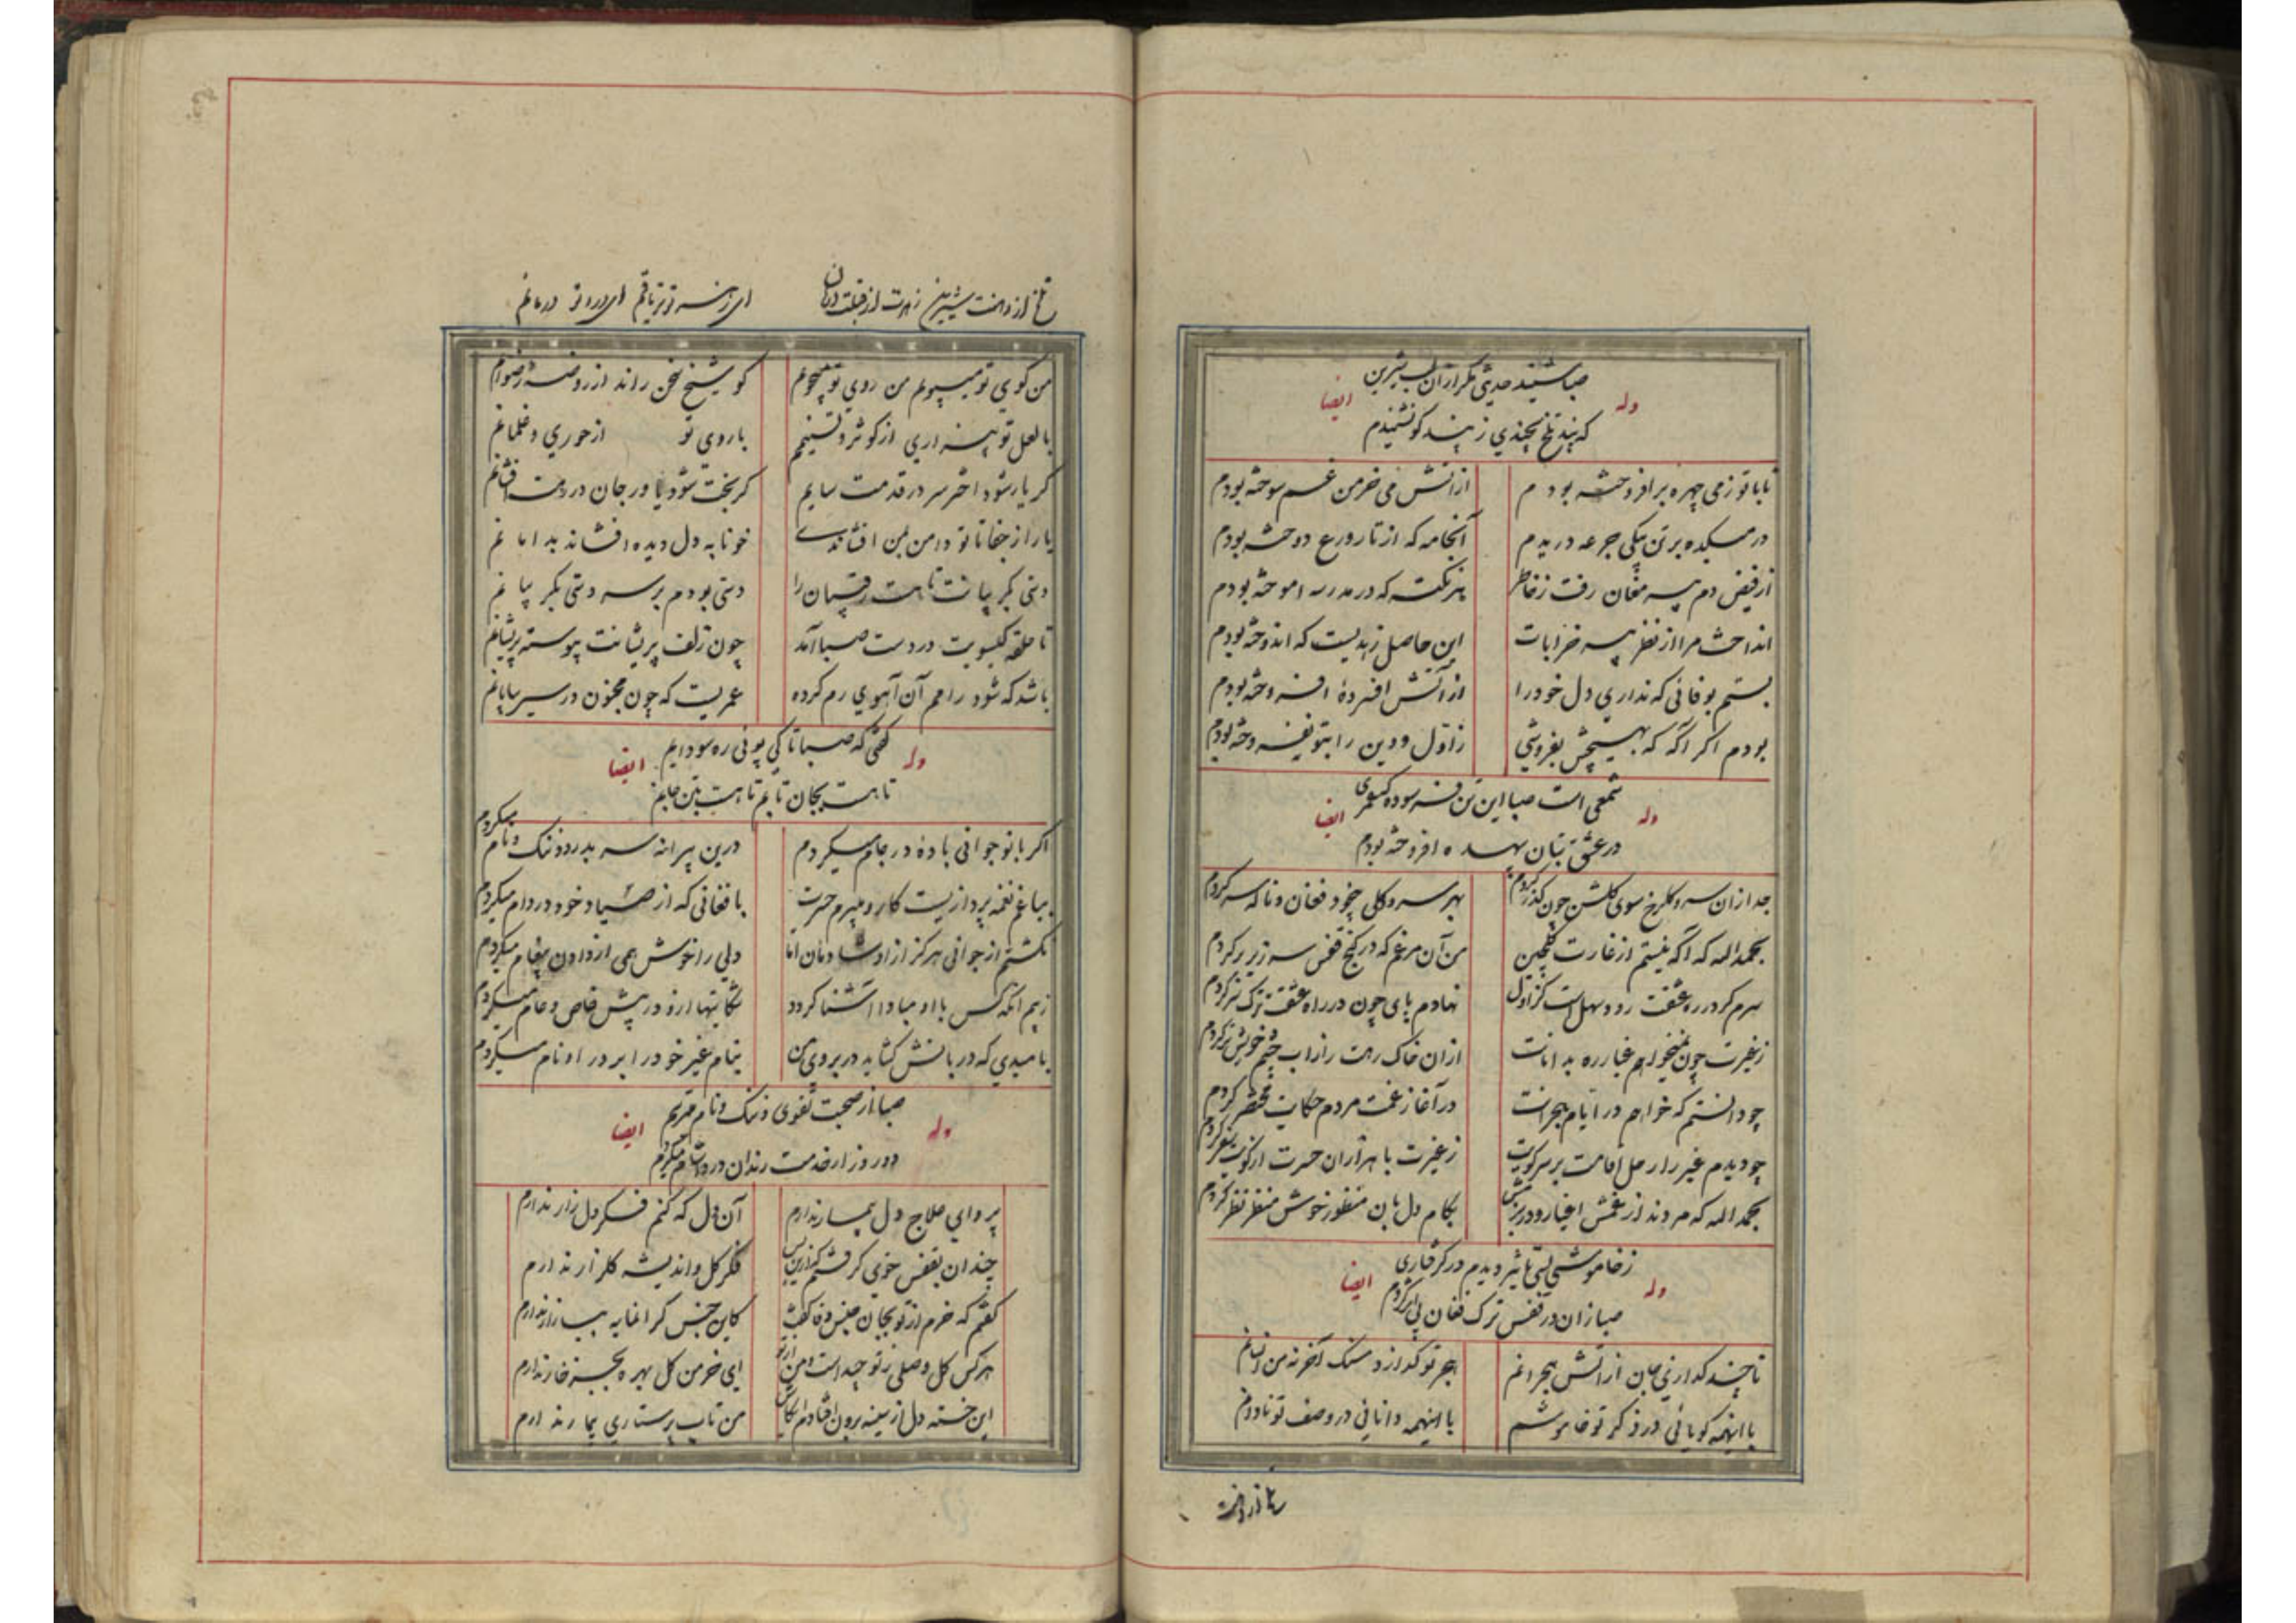 صبا شنید حدیثی مکر از آن لب شیرین
وله ایضا
که پند تلخ بچندی ز پند کو نشنیدم
تا با تو ز می چهره برافروخته بودم از آتش می خرمن غم سوخته بودم
در میکده بر تن بیکی جرعه دریدم آنجامه که از تار ورع دوخته بودم
از فیض دم پیر مغان رفت ز خاطر هر نکته که در مدرسه اموخته بودم
انداخت مرا از نظر پیر خرابات این حاصل زهدیست که اندوخته بودم
بستم بوفائی که نداری دل خود را از آتش افسردهٔ افروخته بودم
بودم اکر آکه که بهیچش بفروشی ز اول دل و دین را بتو نفروخته بودم
شمعی است صبا این تن فرسوده که عمری
وله ایضا
در عشق بتان بیهده افروخته بودم
جدا زان سرو کلرخ سوی کلشن چون کذر کردم بهر سرو و کلی چخود فغان و ناله سر کردم
بحمدالله که آکه نیستم از غارت کلچین من آن مرغم که در کنج قفس سر زیر پر کردم
سرم کر در ره عشقت رود سهل است کز اول نهادم پای چون در راه عشقت ترک سر کردم
ز غیرت چون نمیخواهم غبار ره بدامانت ازان خاک رهت را ز اب چشم خویش تر کردم
چو دانستم که خواهم در ایام هجرانت در آغاز غمت مردم حکایت مختصر کردم
چو دیدم غیر را رحل اقامت بر سر کویت ز غیرت با هزاران حسرت از کویت سفر کردم
بحمدالله که مردند از غمش اغیار و در بزمش بکام دل بان منظور خوش منظر نظر کردم
ز خاموشی بسی تاثیر دیدم در کرفتاری
وله ایضا
صبا زان در قفس ترک فغان بی اثر کردم
تا چند کدازی جان از آتش هجرانم هجر تو کدازد سنک آخر نه من انسانم
با اینهمه کویائی در ذکر تو خاموشم با اینهمه دانائی در وصف تو نادانم
تلخ از دهنت شیرین زهرت از قبلت درمان ای زهر تو تریاقم ای درد تو درمانم
من کوی تو میپویم من روی تو میجویم کو شیخ سخن راند از روضه رضوانم
با لعل تو بیزاری از کوثر و تسنیمم با روی تو از حوری و غلمانم
کر یار شود اختر سر در قدمت سایم کر بخت شود یاور جان در رهت افشانم
یارا ز جفا تا تو دامن بمن افشاندی خونابه دل دیده افشاند بدامانم
دستی بکریبانت تا هست رقیبان را دستی بودم بر سر دستی بکریبانم
تا حلقه کیسویت در دست صبا آمد چون زلف پریشانت پیوسته پریشانم
باشد که شود رامم آن آهوی رم کرده عمریست که چون مجنون در سیر بیابانم
کفتی که صبا تا کی پوئی ره سودایم
وله ایضا
تا هست بجان تابم تا هست بتن جانم
اکر با نوجوانی باده در جام میکردم درین پیرانه سر بدرود ننک و نام میکردم
بباغم نغمه پردازیست کار و میبرم حسرت بافغانی که از صیاد خود در دام میکردم
نکشتم از جوانی هرکز ازو شادمان اما دلی را خوش همی از دادن پیغام میکردم
ز بیم آنکه کس با او مبادا آشنا کردد شکایتها ازو در پیش خاص و عام میکردم
بامیدی که دربانش کشاید در بروی من بنام غیر خود را بر در او نام میکردم
صبا از صحبت تقوی و ننک و نام
وله ایضا
دو روز ار خدمت رندان درد آشام میکردم
پروای علاج دل بیمار ندارم آن دل که کنم فکر دل زار ندارم
چندان بقفس خوی کرفتم که ازین پس فکر کل و اندیشه کلزار ندارم
کفتم که خرم از تو بجان جنس وفا کفت کاین جنس کرانمایه ببازار ندارم
هرکس کل وصلی ز تو چیده است و من از تو ای خرمن کل بهره بجز خار ندارم
این خسته دل از سینه برون افتادم ایکاش من تاب پرستاری بیمار ندارم